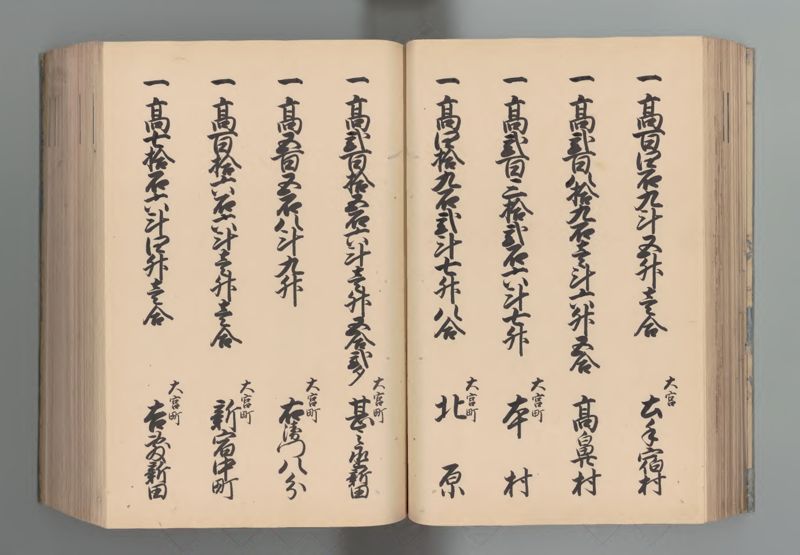 一髙百四石九斗五升壱合 大宮 土手宿村
一髙弐百八拾九石壱斗六升五合 髙鼻村
一髙弐百三拾弐石六斗七升 大宮町 本村
一髙四拾九石弐斗七升八合 大宮町 北原
一髙弐百拾五石六斗壱升五合弐夕 大宮町 甚之丞新田
一髙五百五石八斗九升 大宮町 右衛門八分
一髙百拾六石六斗壱升壱合 大宮町 新宿中町
一髙七拾石六斗四升壱合 大宮町 吉敷新田